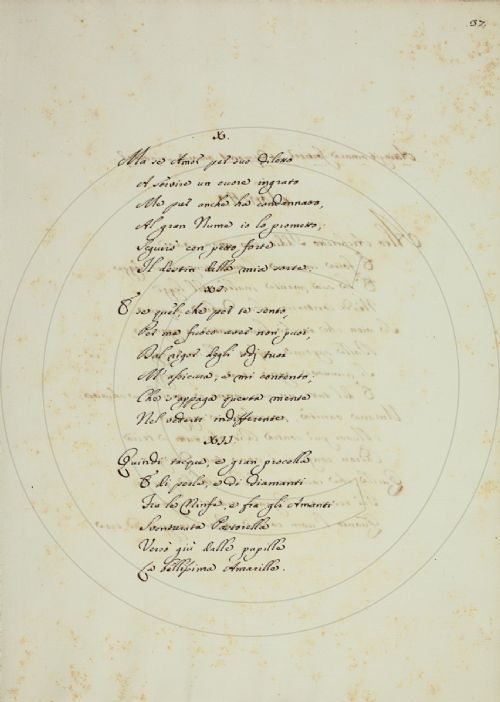 37.
X.
Ma se Amor per suo diletto
A servire un cuore ingrato
Me pur anche ha condannato,
Al gran Nume io lo prometto,
Seguirò con petto forte
Il destin della mia sorte.
XI.
E se quel, che per te sento,
Per me fuoco aver non puoi,
Dal rigor degli odj tuoi
M'assicura, e mi contento,
Che s'appaga questa mente
Nel vederti indifferente.
XII
Quindi tacque, e gran procella
E di perle, e di diamanti
Fra le Ninfe, e fra gli Amanti
Sventurata Pastorella
Versò giù dalle pupille
La bellissima Amarille.